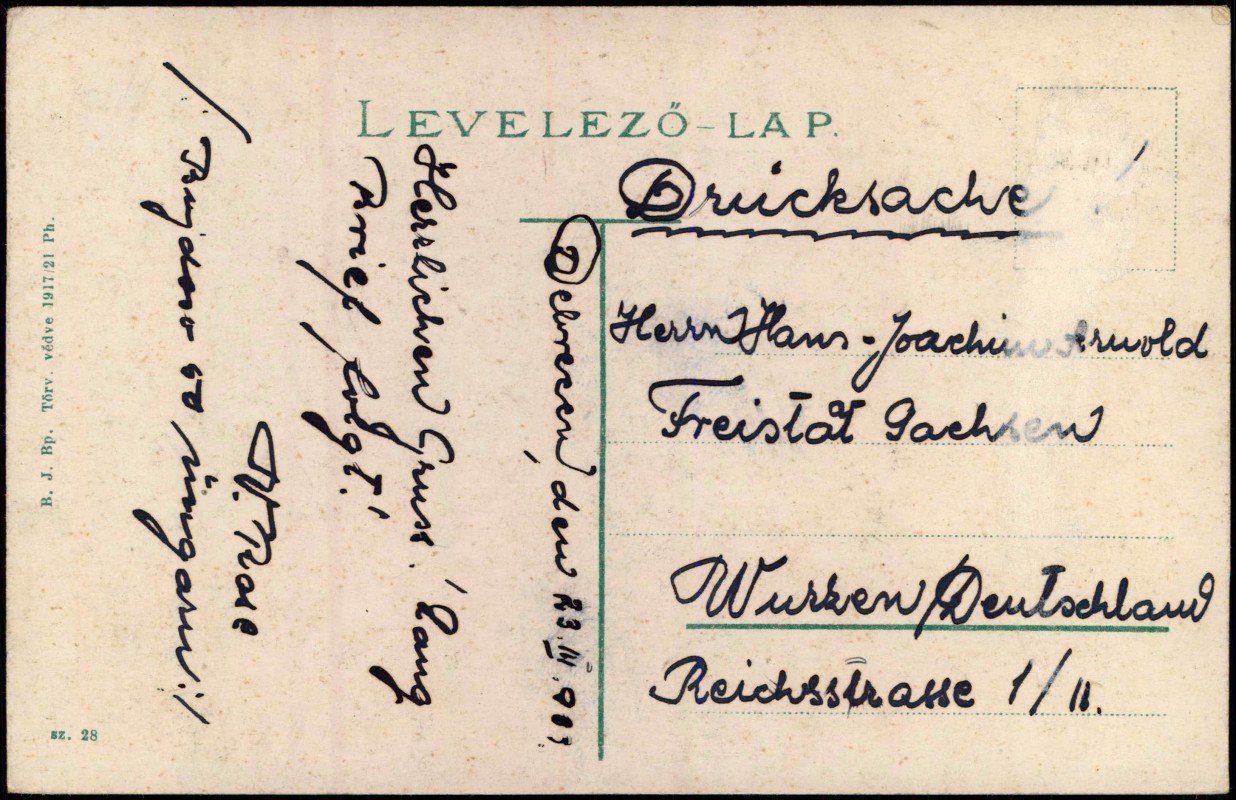 LEVELEZŐ-LAP.
Drucksache!
Herrn Hans-Joachim Arnold
Freistaat Sachsen
Wurzen/Deutschland
Reichsstrasse 1/II.
Debrecen, den 23. IV. 9
Herzlichen Gruss! Lang
Brief folgt!
so Ungarn!/
B. J. Bp. Törv. védve 1917/21 Ph.
sz. 28